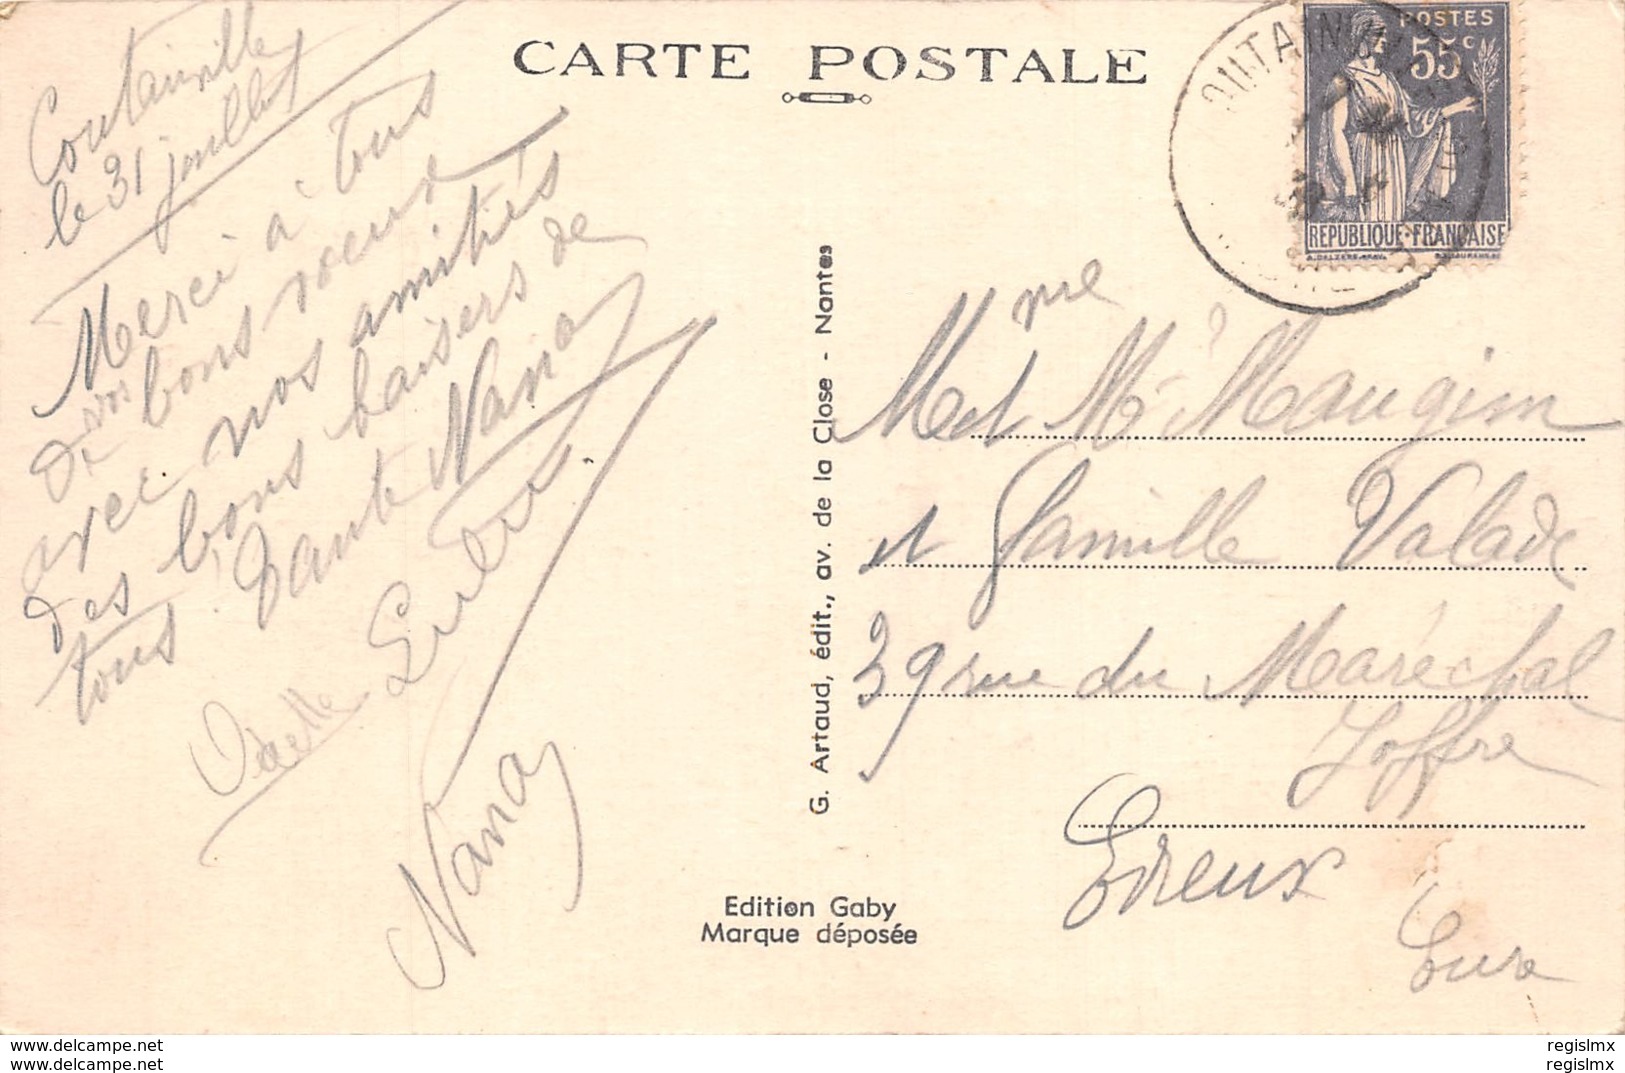 CARTE POSTALE
Coutainville
le 31 juillet
Merci à tous
de vos bons voeux
avec nos amitiés
des bons baisers de
tous Tante Nana
Odette
Nana
G. Artaud, édit., av. de la Close - Nantes
Edition Gaby
Marque déposée
POSTES
55c
REPUBLIQUE·FRANÇAISE
M et Mme Maugin
et famille Valade
39 rue du Maréchal
Joffre
Evreux
Eure
www.delcampe.net
www.delcampe.net
regislmx
regislmx